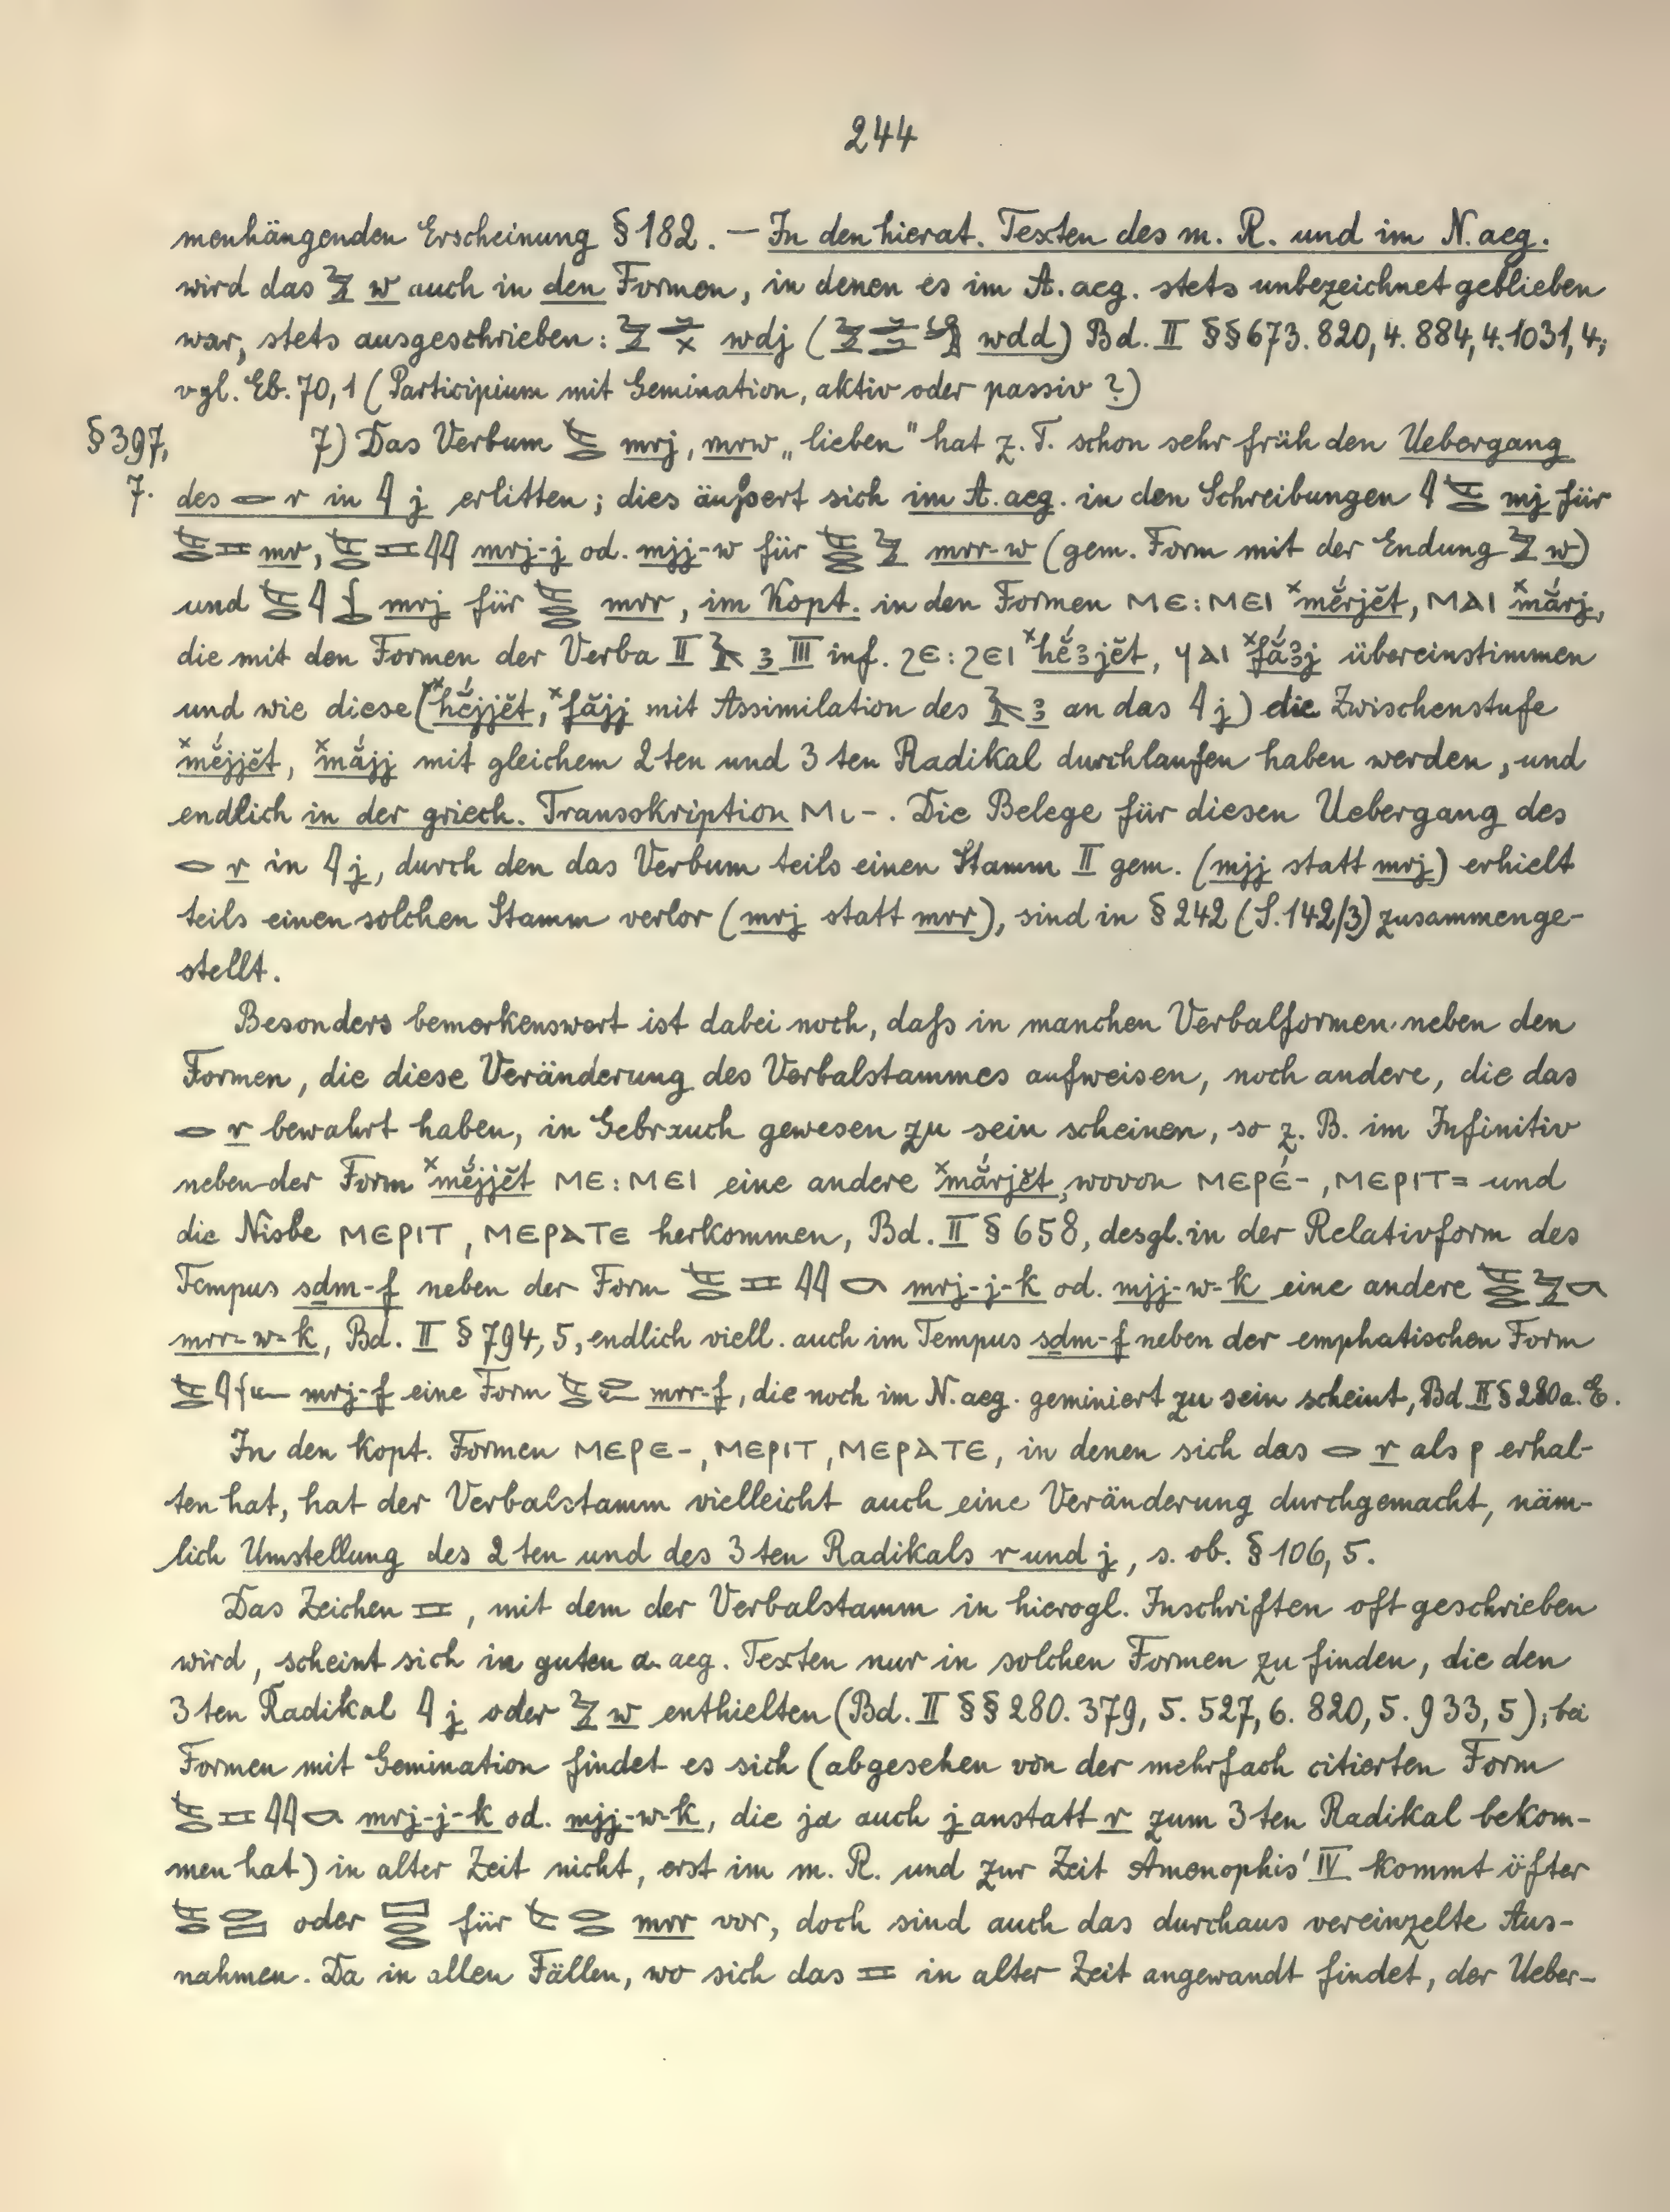 244
menhängenden Erscheinung § 182. — In den hierat. Texten des m. R. und im N. aeg.
wird das 𓅱 w auch in den Formen, in denen es im A. aeg. stets unbezeichnet geblieben
war, stets ausgeschrieben: wdj ( wdd) Bd. II §§ 673. 820, 4. 884, 4. 1031, 4;
vgl. Eb. 70, 1 (Participium mit Gemination, aktiv oder passiv?)
§ 397, 7) Das Verbum mrj, mrw „lieben" hat z. T. schon sehr früh den Uebergang
7. des 𓂋 r in 𓇋 j erlitten; dies äußert sich im A. aeg. in den Schreibungen mj für
mr, mrj-j od. mjj-w für mrr-w (gem. Form mit der Endung 𓅱 w)
und mrj für mrr, im Kopt. in den Formen ⲘⲈ : ⲘⲈⲒ ˣmĕ́rjĕt, ⲘⲀⲒ ˣmắrj,
die mit den Formen der Verba II 𓄿 ꜣ III inf. ϨⲈ : ϨⲈⲒ ˣhĕ́ꜣjĕt, ϤⲀⲒ ˣfắꜣj übereinstimmen
und wie diese (ˣhĕ́jjĕt, ˣfắjj mit Assimilation des 𓄿 ꜣ an das 𓇋 j) die Zwischenstufe
ˣmĕ́jjĕt, ˣmắjj mit gleichem 2ten und 3ten Radikal durchlaufen haben werden, und
endlich in der griech. Transskription Μι-. Die Belege für diesen Uebergang des
𓂋 r in 𓇋 j, durch den das Verbum teils einen Stamm II gem. (mjj statt mrj) erhielt
teils einen solchen Stamm verlor (mrj statt mrr), sind in § 242 (S. 142/3) zusammenge-
stellt.
Besonders bemerkenswert ist dabei noch, daß in manchen Verbalformen neben den
Formen, die diese Veränderung des Verbalstammes aufweisen, noch andere, die das
𓂋 r bewahrt haben, in Gebrauch gewesen zu sein scheinen, so z. B. im Infinitiv
neben der Form ˣmĕ́jjĕt ⲘⲈ : ⲘⲈⲒ eine andere ˣmắrjĕt, wovon ⲘⲈⲢⲈ́-, ⲘⲈⲢⲒⲦ= und
die Nisbe ⲘⲈⲢⲒⲦ, ⲘⲈⲢⲀⲦⲈ herkommen, Bd. II § 658, desgl. in der Relativform des
Tempus sḏm-f neben der Form mrj-j-k od. mjj-w-k eine andere
mrr-w-k, Bd. II § 794, 5, endlich viell. auch im Tempus sḏm-f neben der emphatischen Form
mrj-f eine Form mrr-f, die noch im N. aeg. geminiert zu sein scheint, Bd II § 280 a. E.
In den kopt. Formen ⲘⲈⲢⲈ-, ⲘⲈⲢⲒⲦ, ⲘⲈⲢⲀⲦⲈ, in denen sich das 𓂋 r als ⲣ erhal-
ten hat, hat der Verbalstamm vielleicht auch eine Veränderung durchgemacht, näm-
lich Umstellung des 2ten und des 3ten Radikals r und j, s. ob. § 106, 5.
Das Zeichen 𓈅, mit dem der Verbalstamm in hierogl. Inschriften oft geschrieben
wird, scheint sich in guten a. aeg. Texten nur in solchen Formen zu finden, die den
3ten Radikal 𓇋 j oder 𓅱 w enthielten (Bd. II §§ 280. 379, 5. 527, 6. 820, 5. 933, 5); bei
Formen mit Gemination findet es sich (abgesehen von der mehrfach citierten Form
mrj-j-k od. mjj-w-k, die ja auch j anstatt r zum 3ten Radikal bekom-
men hat) in alter Zeit nicht, erst im m. R. und zur Zeit Amenophis' IV kommt öfter
oder für mrr vor, doch sind auch das durchaus vereinzelte Aus-
nahmen. Da in allen Fällen, wo sich das 𓈅 in alter Zeit angewandt findet, der Ueber-